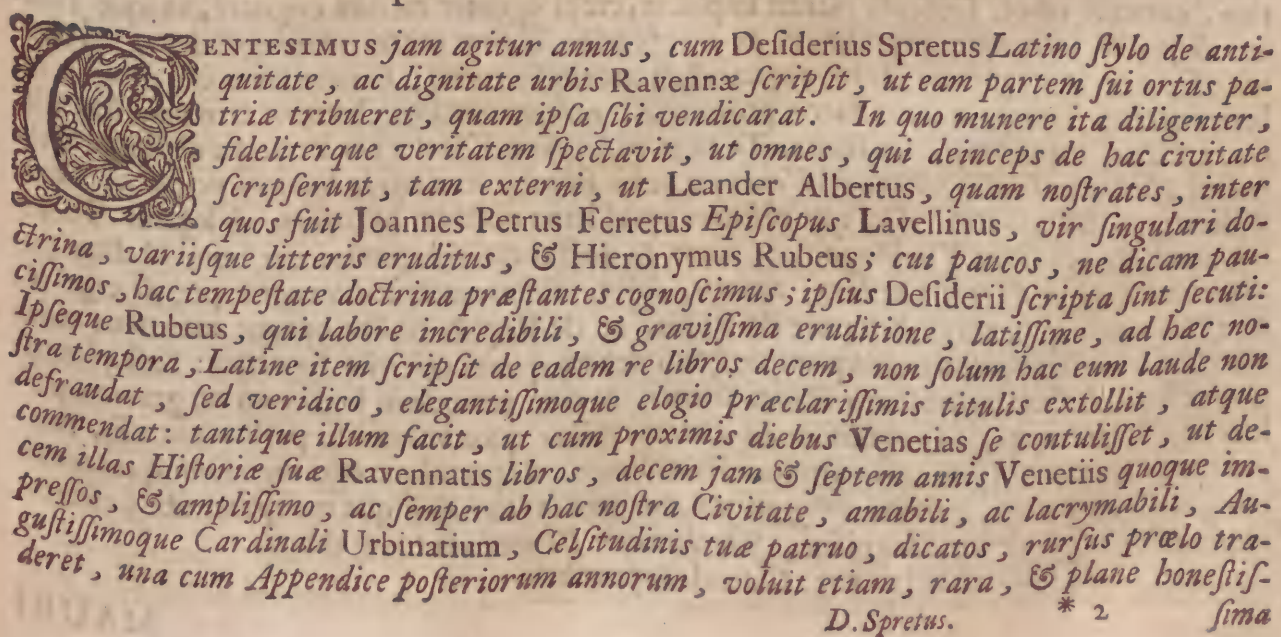 CENTESIMUS jam agitur annus, cum Deſiderius Spretus Latino ſtylo de anti-
quitate, ac dignitate urbis Ravennæ ſcripſit, ut eam partem ſui ortus pa-
triæ tribueret, quam ipſa ſibi vendicarat. In quo munere ita diligenter,
fideliterque veritatem ſpectavit, ut omnes, qui deinceps de hac civitate
ſcripſerunt, tam externi, ut Leander Albertus, quam noſtrates, inter
quos fuit Joannes Petrus Ferretus Epiſcopus Lavellinus, vir ſingulari do-
ctrina, variiſque litteris eruditus, & Hieronymus Rubeus; cui paucos, ne dicam pau-
ciſſimos, hac tempeſtate doctrina præſtantes cognoſcimus; ipſius Deſiderii ſcripta ſint ſecuti:
Ipſeque Rubeus, qui labore incredibili, & graviſſima eruditione, latiſſime, ad hæc no-
ſtra tempora, Latine item ſcripſit de eadem re libros decem, non ſolum hac eum laude non
defraudat, ſed veridico, elegantiſſimoque elogio præclariſſimis titulis extollit, atque
commendat: tantique illum facit, ut cum proximis diebus Venetias ſe contuliſſet, ut de-
cem illas Hiſtoriæ ſuæ Ravennatis libros, decem jam & ſeptem annis Venetiis quoque im-
preſſos, & ampliſſimo, ac ſemper ab hac noſtra Civitate, amabili, ac lacrymabili, Au-
guſtiſſimoque Cardinali Urbinatium, Celſitudinis tuæ patruo, dicatos, rurſus prœlo tra-
deret, una cum Appendice poſteriorum annorum, voluit etiam, rara, & plane honeſtiſ-
D. Spretus. * 2 ſima